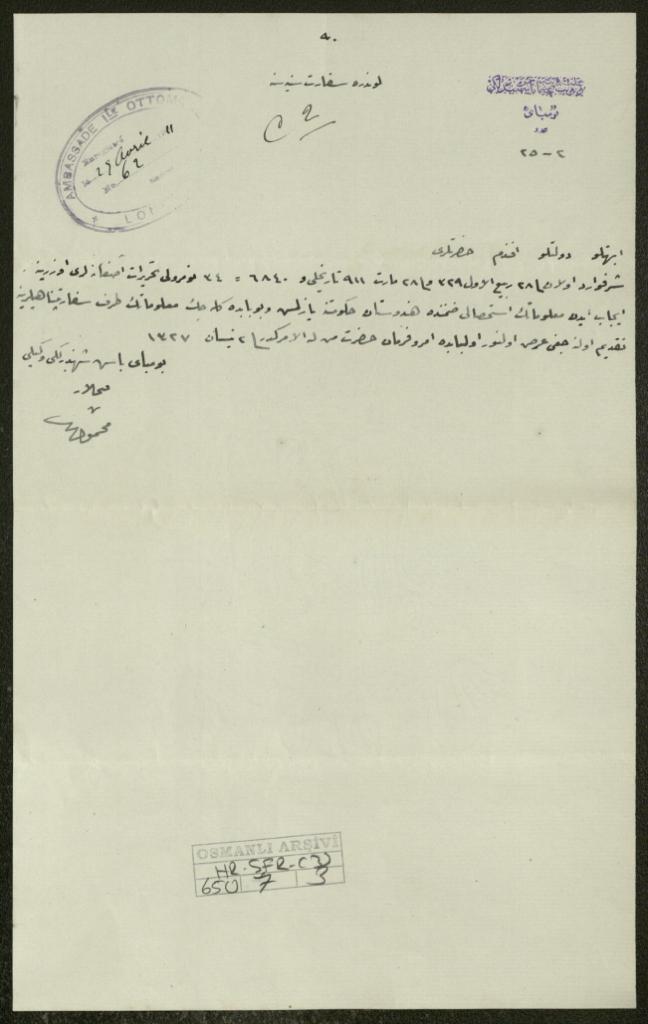 لوندره سفارت سنیه سنه
بومبای
عدد
٢٥-٢
AMBASSADE Ile OTTOMANE
LON
29 Avril 11
No 62
ابهتلو دولتلو افندم حضرتلری
شرفوارد اولان ٢٨ ربیع الاول ٣٢٩ و ٢٨ مارت ٩١١ تاریخلی و ٦٨٤٠ = ٣٤ نومرولی تحریرات آصفانه لری اوزرینه
ایجاب ایدن معلوماتك استحصالی ضمننده هندوستان حکومتنه یازلمش و بوبابده کله جك معلوماتك طرف سفارتپناهیلرینه
تقدیم اولنه جغی عرض اولنور اولبابده امر و فرمان حضرت من له الامرکدر ٢ نیسان ١٣٢٧
بومبای باش شهبندرلکی وکیلی
محمود
OSMANLI ARŞİVİ
HR.SFR.(3)
650 7 3